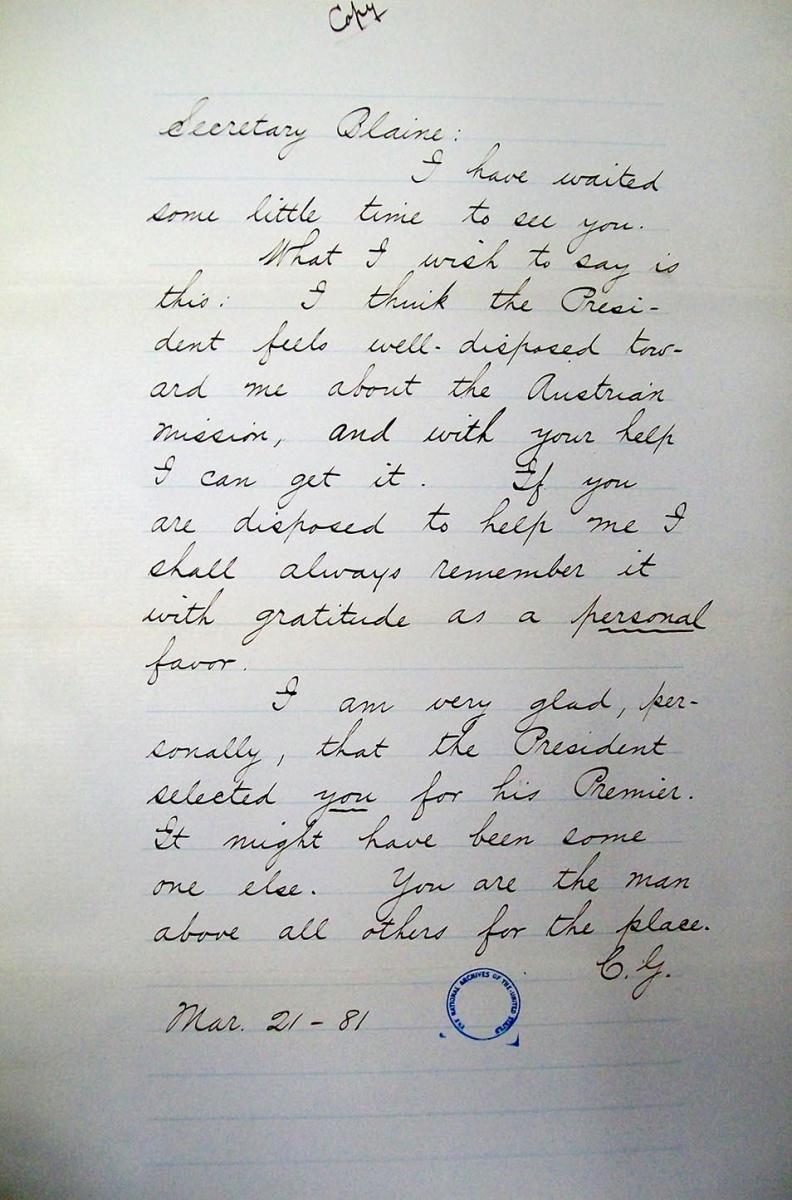 Copy
Secretary Blaine:
I have waited
some little time to see you.
What I wish to say is
this: I think the Presi-
dent feels well-disposed tow-
ard me about the Austrian
mission, and with your help
I can get it. If you
are disposed to help me I
shall always remember it
with gratitude as a personal
favor.
I am very glad, per-
sonally, that the President
selected you for his Premier.
It might have been some
one else. You are the man
above all others for the place.
C. G.
Mar. 21 - 81
THE NATIONAL ARCHIVES OF THE UNITED STATES